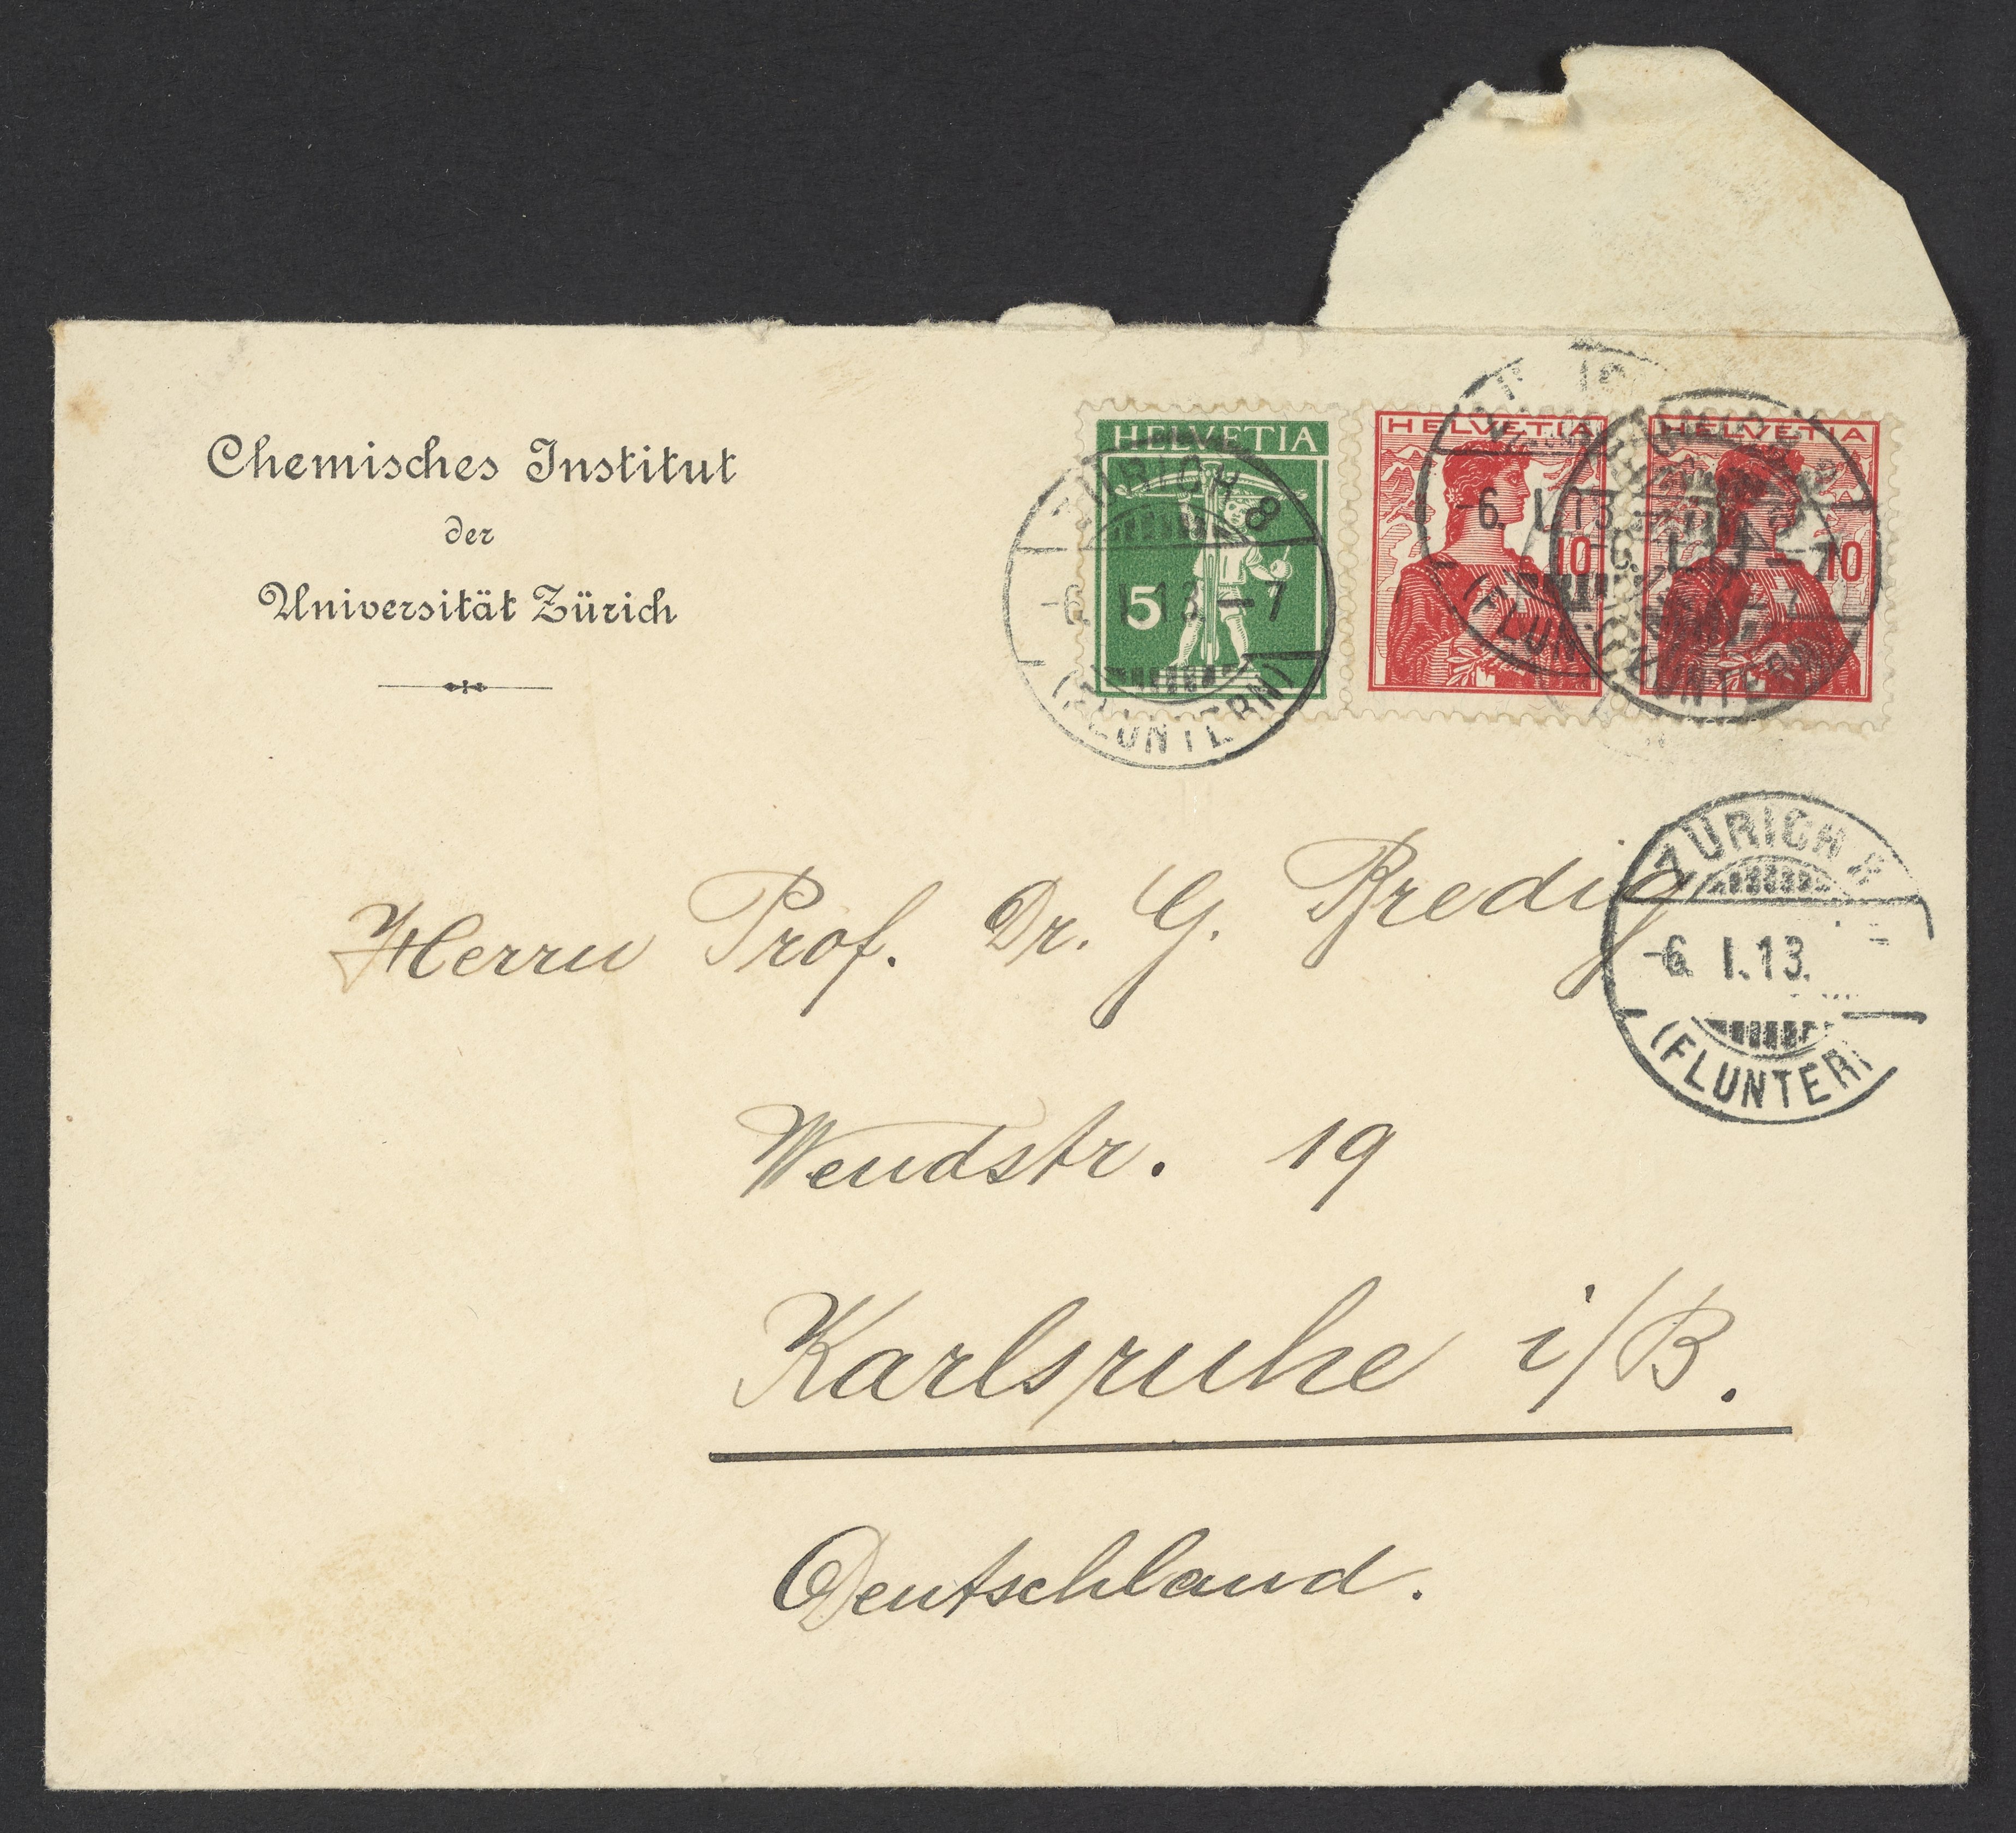 Chemisches Institut
der
Universität Zürich
HELVETIA
5
HELVETIA
10
HELVETIA
10
ZÜRICH 8
-6. I. 13. -7
(FLUNTERN)
-6. I. 13
(FLUN
-7
(FLUNTERN
ZÜRICH 8
-6. I. 13.
(FLUNTERN
Herrn Prof. Dr. G. Bredig
Wendstr. 19
Karlsruhe i/B.
Deutschland.